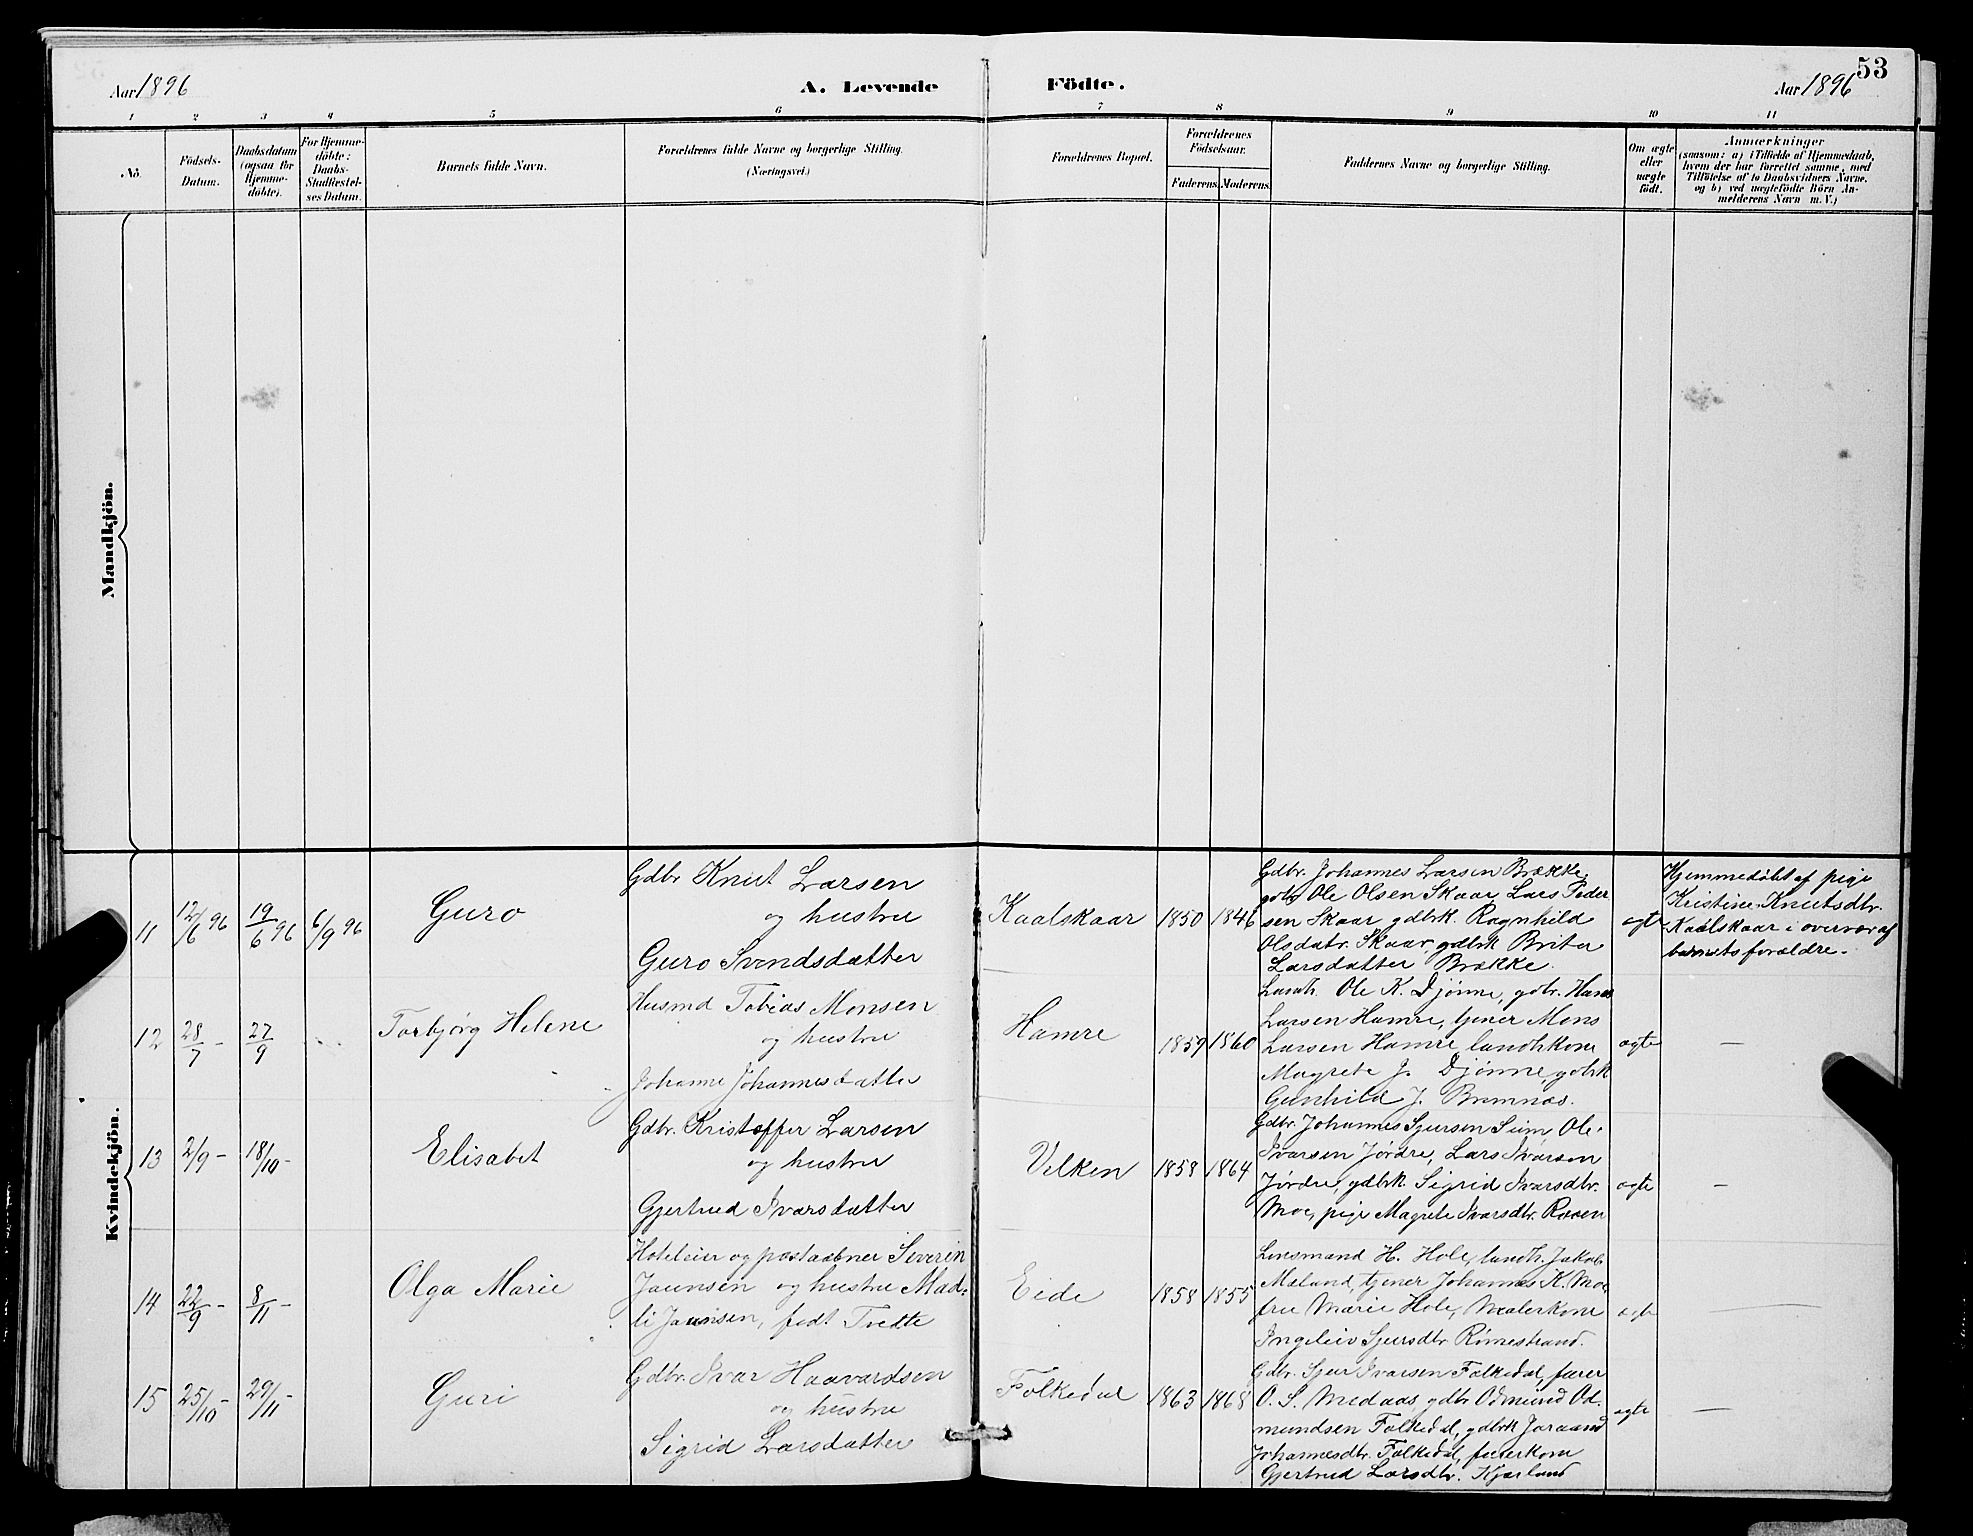 53
Aar 1896
A. Levende
Födte.
Aar 1896
1 2 3 4 5 6 7 8 9 10 11
No.
Födsels-
Datum.
Daabsdatum
(ogsaa for
Hjemme-
döbte).
For Hjemme-
döbte:
Daabs-
Stadfæstel-
ses Datum.
Barnets fulde Navn.
Forældrenes fulde Navne og borgerlige Stilling.
(Næringsvei.)
Forældrenes Bopæl.
Forældrenes
Födselsaar.
Faderens.
Moderens.
Faddernes Navne og borgerlige Stilling.
Om ægte
eller
uægte
födt.
Anmærkninger
(saasom: a) i Tilfælde af Hjemmedaab,
hvem der har forrettet samme, med
Tilföielse af to Daabsvidners Navne,
og b) ved uægtefödte Börn An-
melderens Navn m. V.)
Mandkjön.
Kvindekjön.
11
12/6 96
19/6 96
6/9 96
Guro
Gdbr. Knut Larsen
og hustru
Guro Svendsdatter
Kaalskaar
1850
1846
Gdbr. Johannes Larsen Brække,
gdbr. Ole Olsen Skaar, Lars Peder
sen Skaar, gdbrk. Ragnhild
Olsdatr. Skaar, gdbrk Brita
Larsdatter Brække.
ægte
Hjemmedöbt af pige
Kristine Knutsdtr.
Kaalskaar i overvær af
barnets forældre.
12
28/7 -
27/9
Torbjørg Helene
Husmd Tobias Monsen
og hustru
Johanne Johannesdatter
Hamre
1859
1860
Landh. Ole K. Djønne, gdbr. Hans
Larsen Hamre, tjener Mons
Larsen Hamre, landhkone
Magrete J. Djønne, gdbrk
Gunhild J. Bremnæs.
ægte
—
13
2/9 -
18/10 -
Elisabet
Gdbr. Kristoffer Larsen
og hustru
Gjertrud Ivarsdatter
Velken
1858
1864
Gdbr. Johannes Sjursen Seim, Ole
Ivarsen Jørdre, Lars Ivarsen
Jørdre, gdbrk Sigrid Ivarsdtr.
Moe, pige Magrete Ivarsdtr.
ægte
—
14
22/9 -
8/11 -
Olga Marie
Hoteleier og postaabner Severin
Jaunsen og hustru Mad-
li Jaunsen, født Tvedte
Eide
1858
1855
Lensmand H. Hole, landh. Jakob
Mæland, tjener Johannes K. Moe,
fru Marie Hole, Malerkone
Ingeleiv Sjursdtr Rørnestrand.
ægte
—
15
25/10 -
29/11 -
Guri
Gdbr. Ivar Haavardsen
og hustru
Sigrid Larsdatter
Folkedal
1863
1868
Gdbr. Sjur Ivarsen Folkedal,
O. S. Medaas, gdbr. Odmund Od-
mundsen Folkedal, gdbrk Joraand
Johannesdtr. Folkedal,
Gjertrud Larsdtr. Kjærland
ægte
—